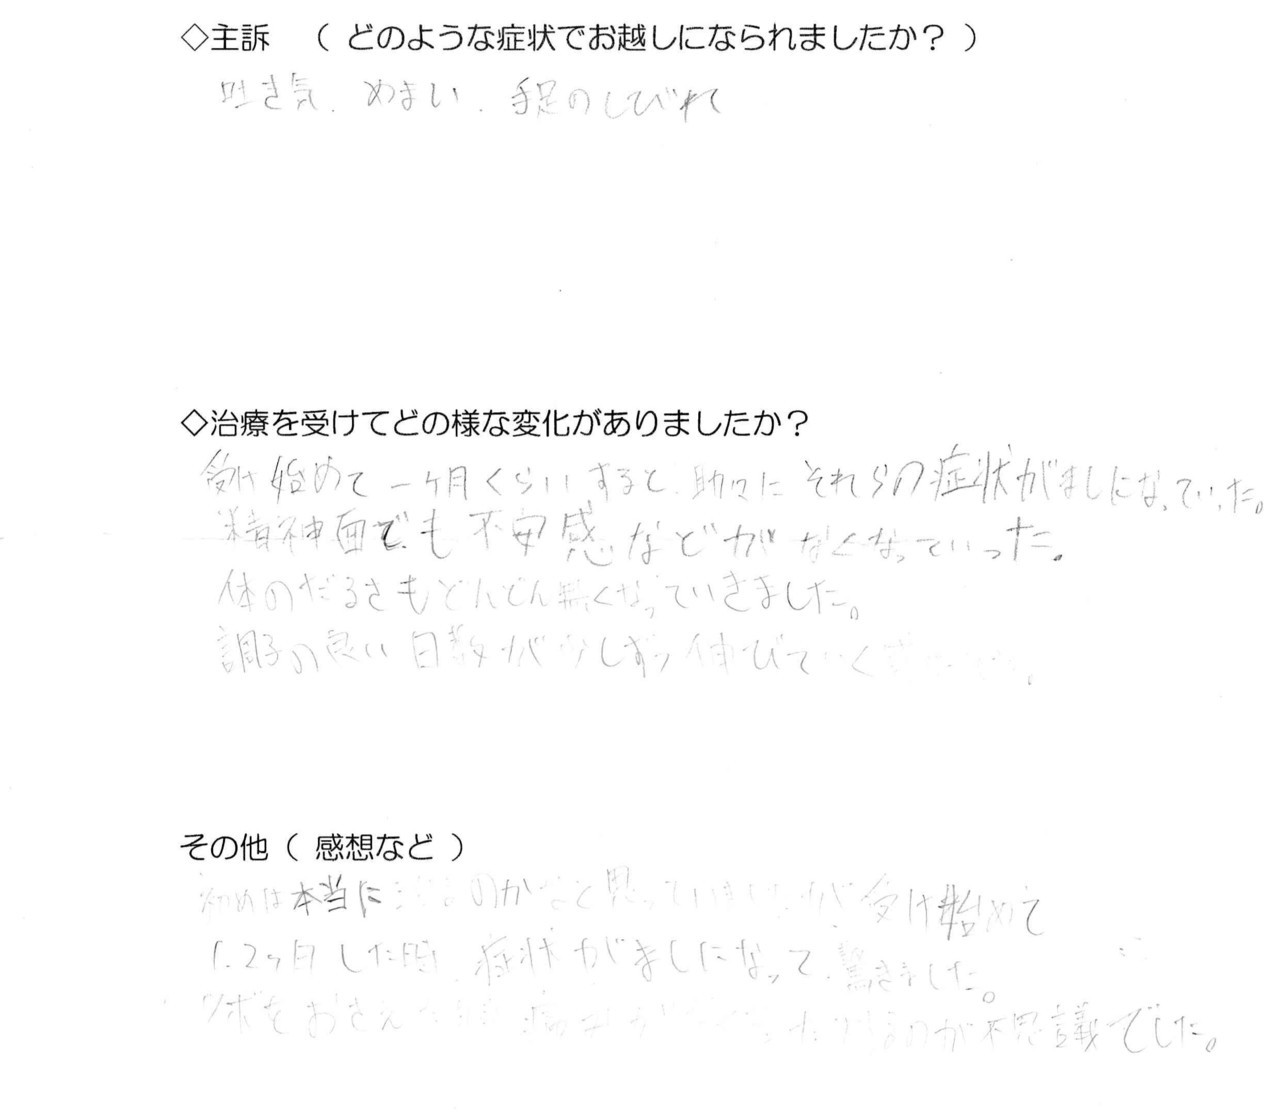 ◇主訴 ( どのような症状でお越しになられましたか? )
吐き気、めまい、手足のしびれ
◇治療を受けてどの様な変化がありましたか?
受け始めて一ヶ月くらいすると、助々にそれらの症状がましになっていった。
精神面でも不安感などがなくなっていった。
体のだるさもどんどん無くなっていきました。
調子の良い日数が少しずつ伸びていく
その他 ( 感想など )
初めは本当に のかなと思っていましたが受け始めて
1、2ヶ月した時、症状がましになって、驚きました。
ツボをおさえ のが不思議でした。